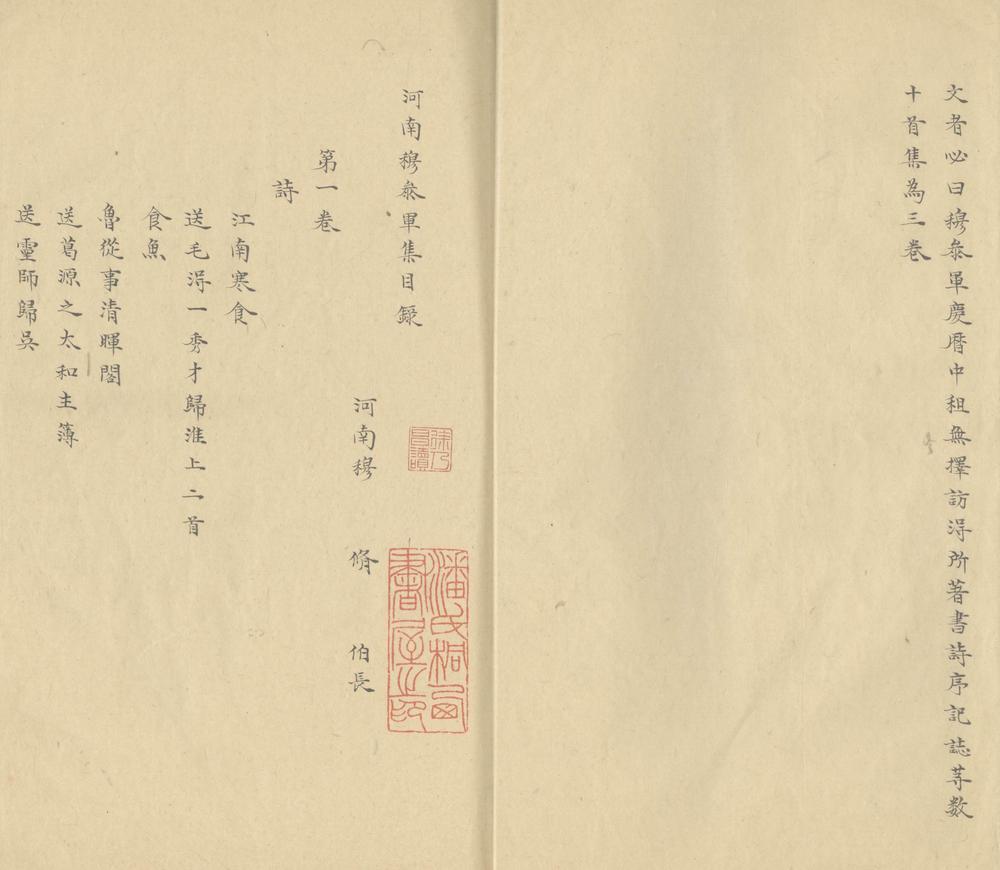 文者必曰穆叅軍慶曆中祖無擇訪淂所著書詩序記誌䓁数
十首集為三卷
河南穆叅軍集目錄
河南穆 脩 伯長
第一卷
詩
江南寒食
送毛淂一秀才歸淮上二首
食魚
魯從事清暉閣
送葛源之太和主簿
送靈師歸吳
潘氏桐西書屋之印